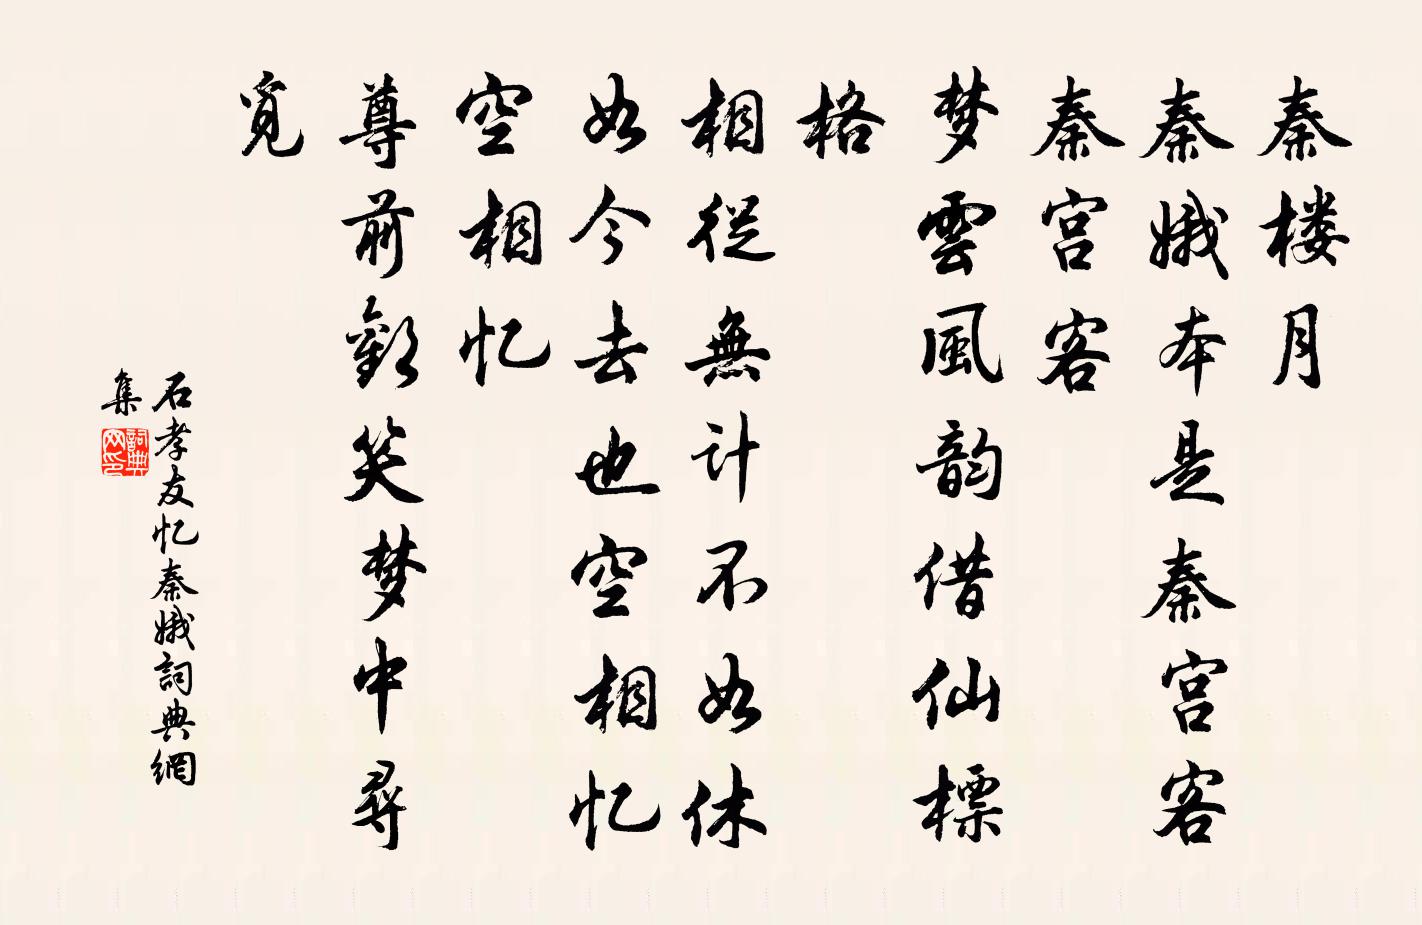 秦楼月
秦娥本是秦宫客
秦宫客
梦雲風韵借仙標
格
相從無計不如休
如今去也空相忆
空相忆
尊前歡笑梦中尋
覓
石孝友忆秦娥詞典網
集
詞典
网印